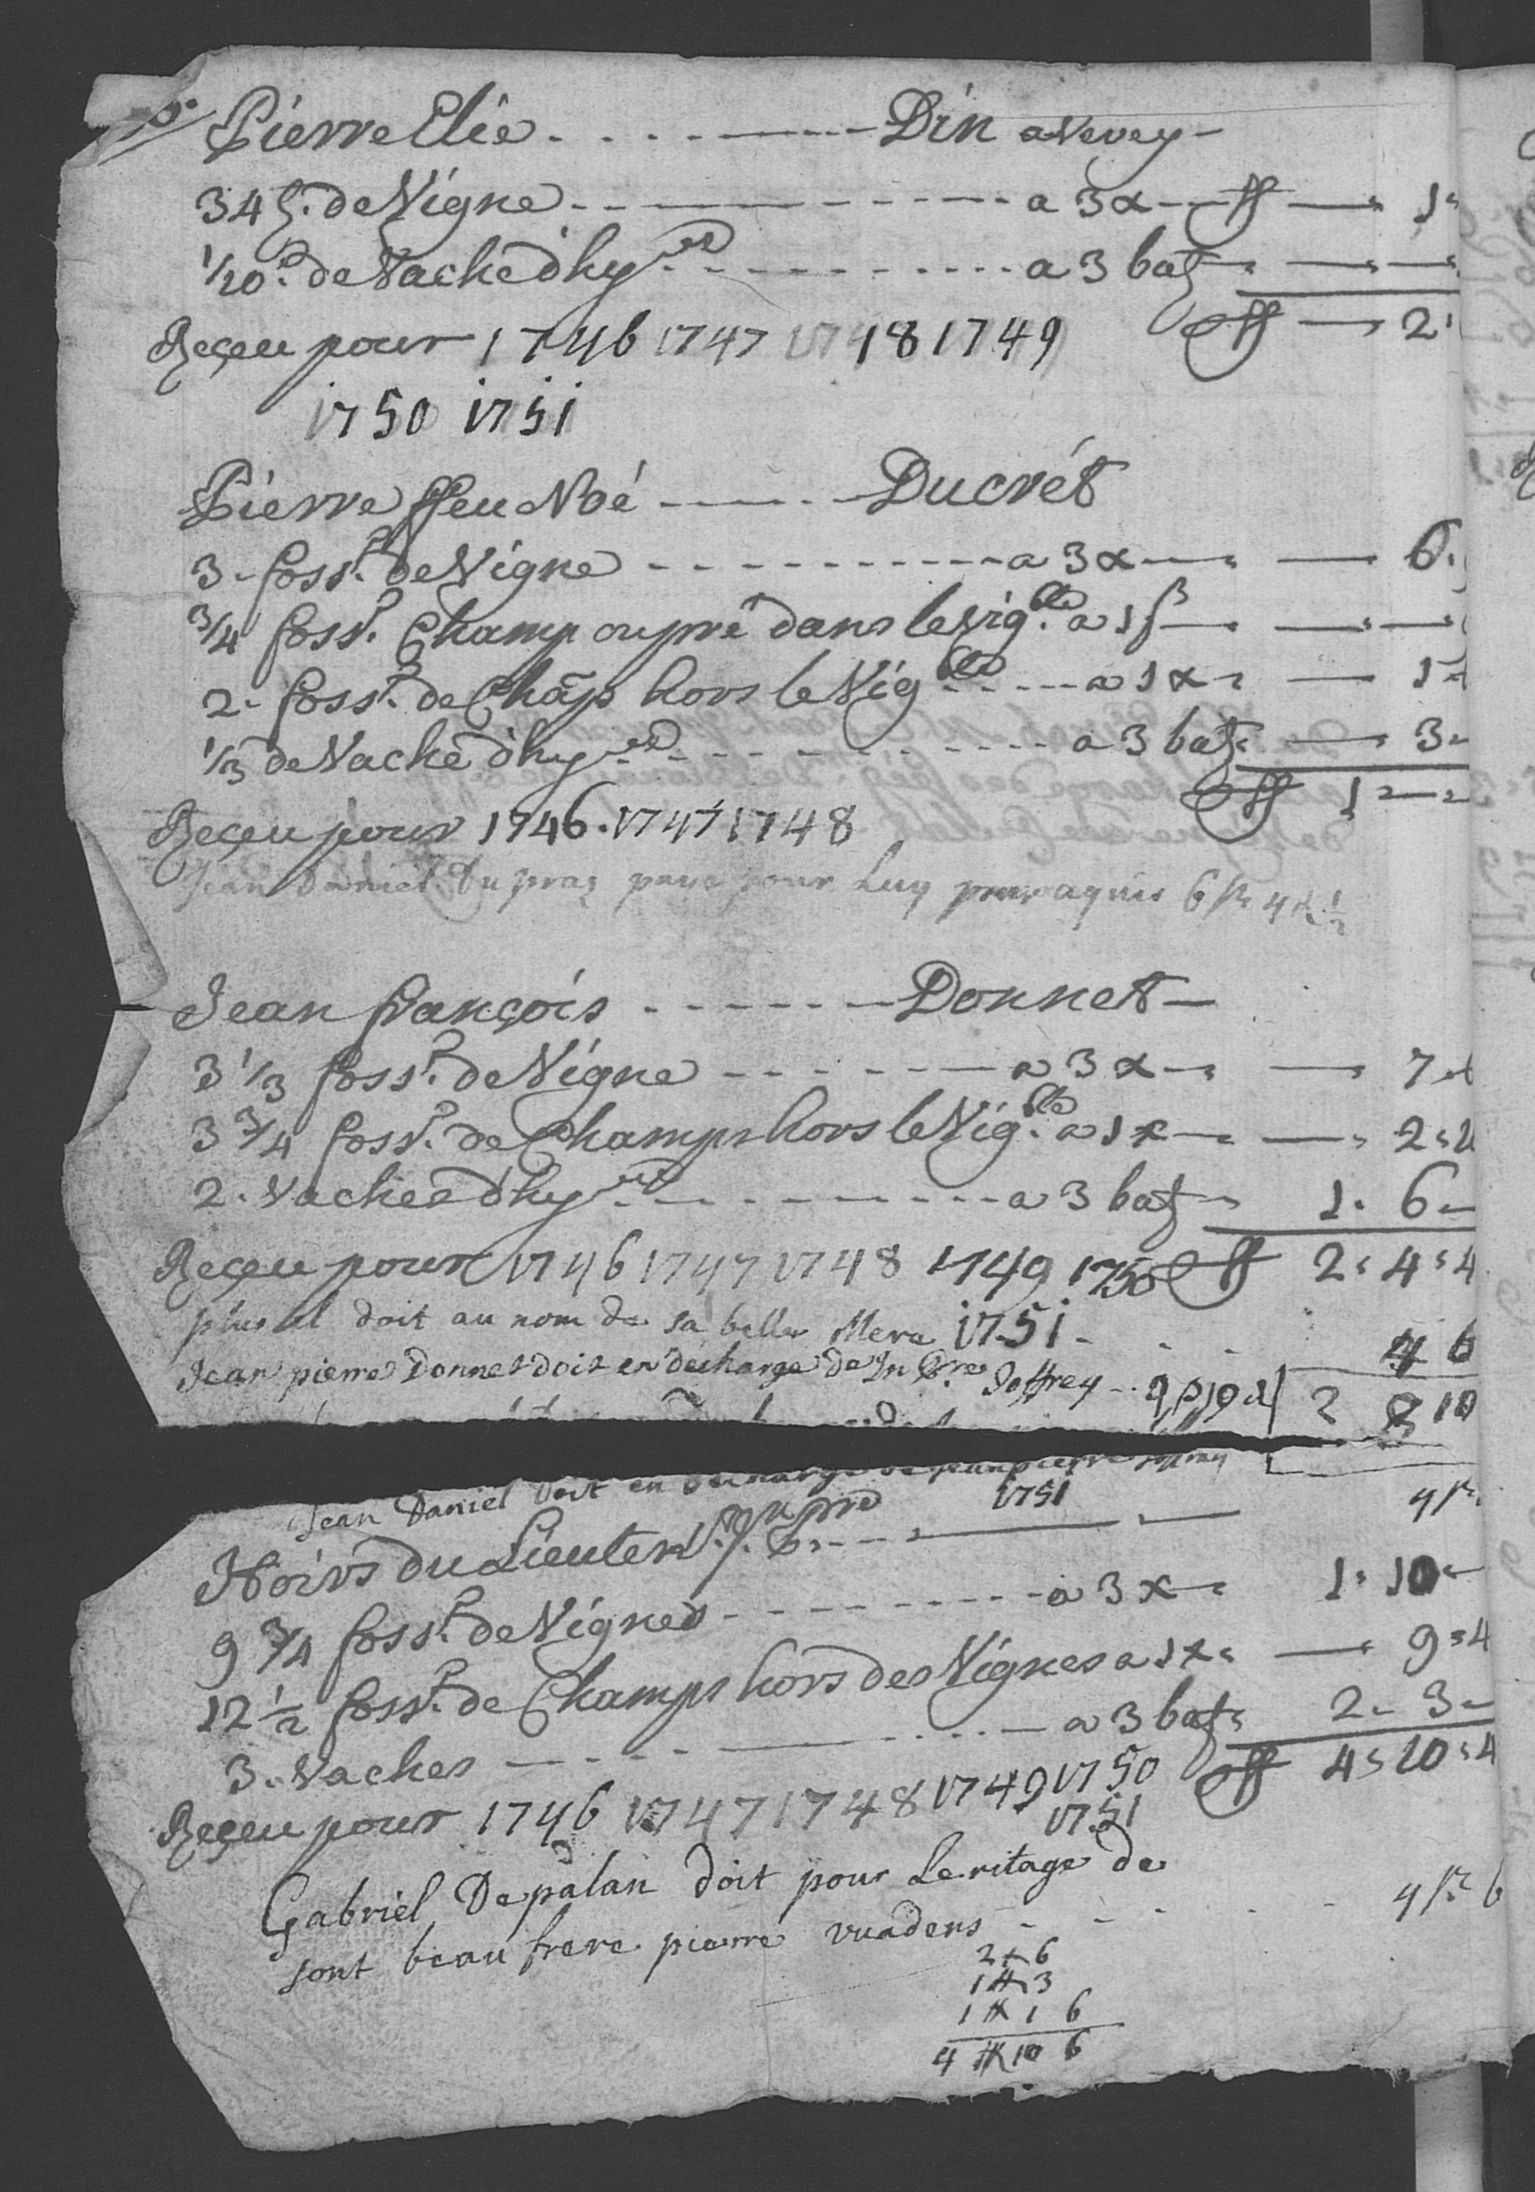 Pierre Elie - - - - Din a Vevey
34 de Vigne - - - - a 3 x - ff - 1
1/20. de Vache dhyver - - - - a 3 batz
ff - 2
Reçeu pour 1746 1747 1748 1749
1750 1751
Pierre ffeu Noé - - - Ducrét
3 - foss.r de Vigne - - - - a 3 x - 6
3/4 foss.r Champ ou pré dans le Vig.ble a 1 ß
2 - foss.r de Chãps hors le Vig.ble - - a 1 x - 1
1/3 de Vache dhyver - - - - a 3 batz - 3
ff 1 - -
Reçeu pour 1746. 1747 1748
Jean Daniel Dupraz paye pour Luy
Jean françois - - - - Donnet
3 1/3 foss.r de Vigne - - - - a 3 x - 7
3 3/4 foss.r de Champs hors le Vig.ble a 1 x - 2
2. Vaches dhyver - - - - a 3 batz 1. 6
Reçeu pour 1746 1747 1748 1749 1750 ff 2 : 4 : 4
plus il doit au nom de sa belle Mere 1751 - - - 4 6
Jean pierre Donnet doit en decharge de Jn Pre Joffrey 2 10
Jean Daniel doit en decharge de Jean pierre
1751
Hoirs du Lieuten.t - - - -
9 3/4 foss.r de Vignes - - - - a 3 x 1 : 10
12 1/2 foss.r de Champs hors des Vignes a 1 x - 9 : 4
3. Vaches - - - - a 3 batz 2 - 3 -
ff 4 : 10 : 4
Reçeu pour 1746 1747 1748 1749 1750
1751
Gabriel Depalan doit pour Leritage de
sont beau frere pierre vuadens - - - - 4 6
2 6
1 3
1 1 6
4 10 6